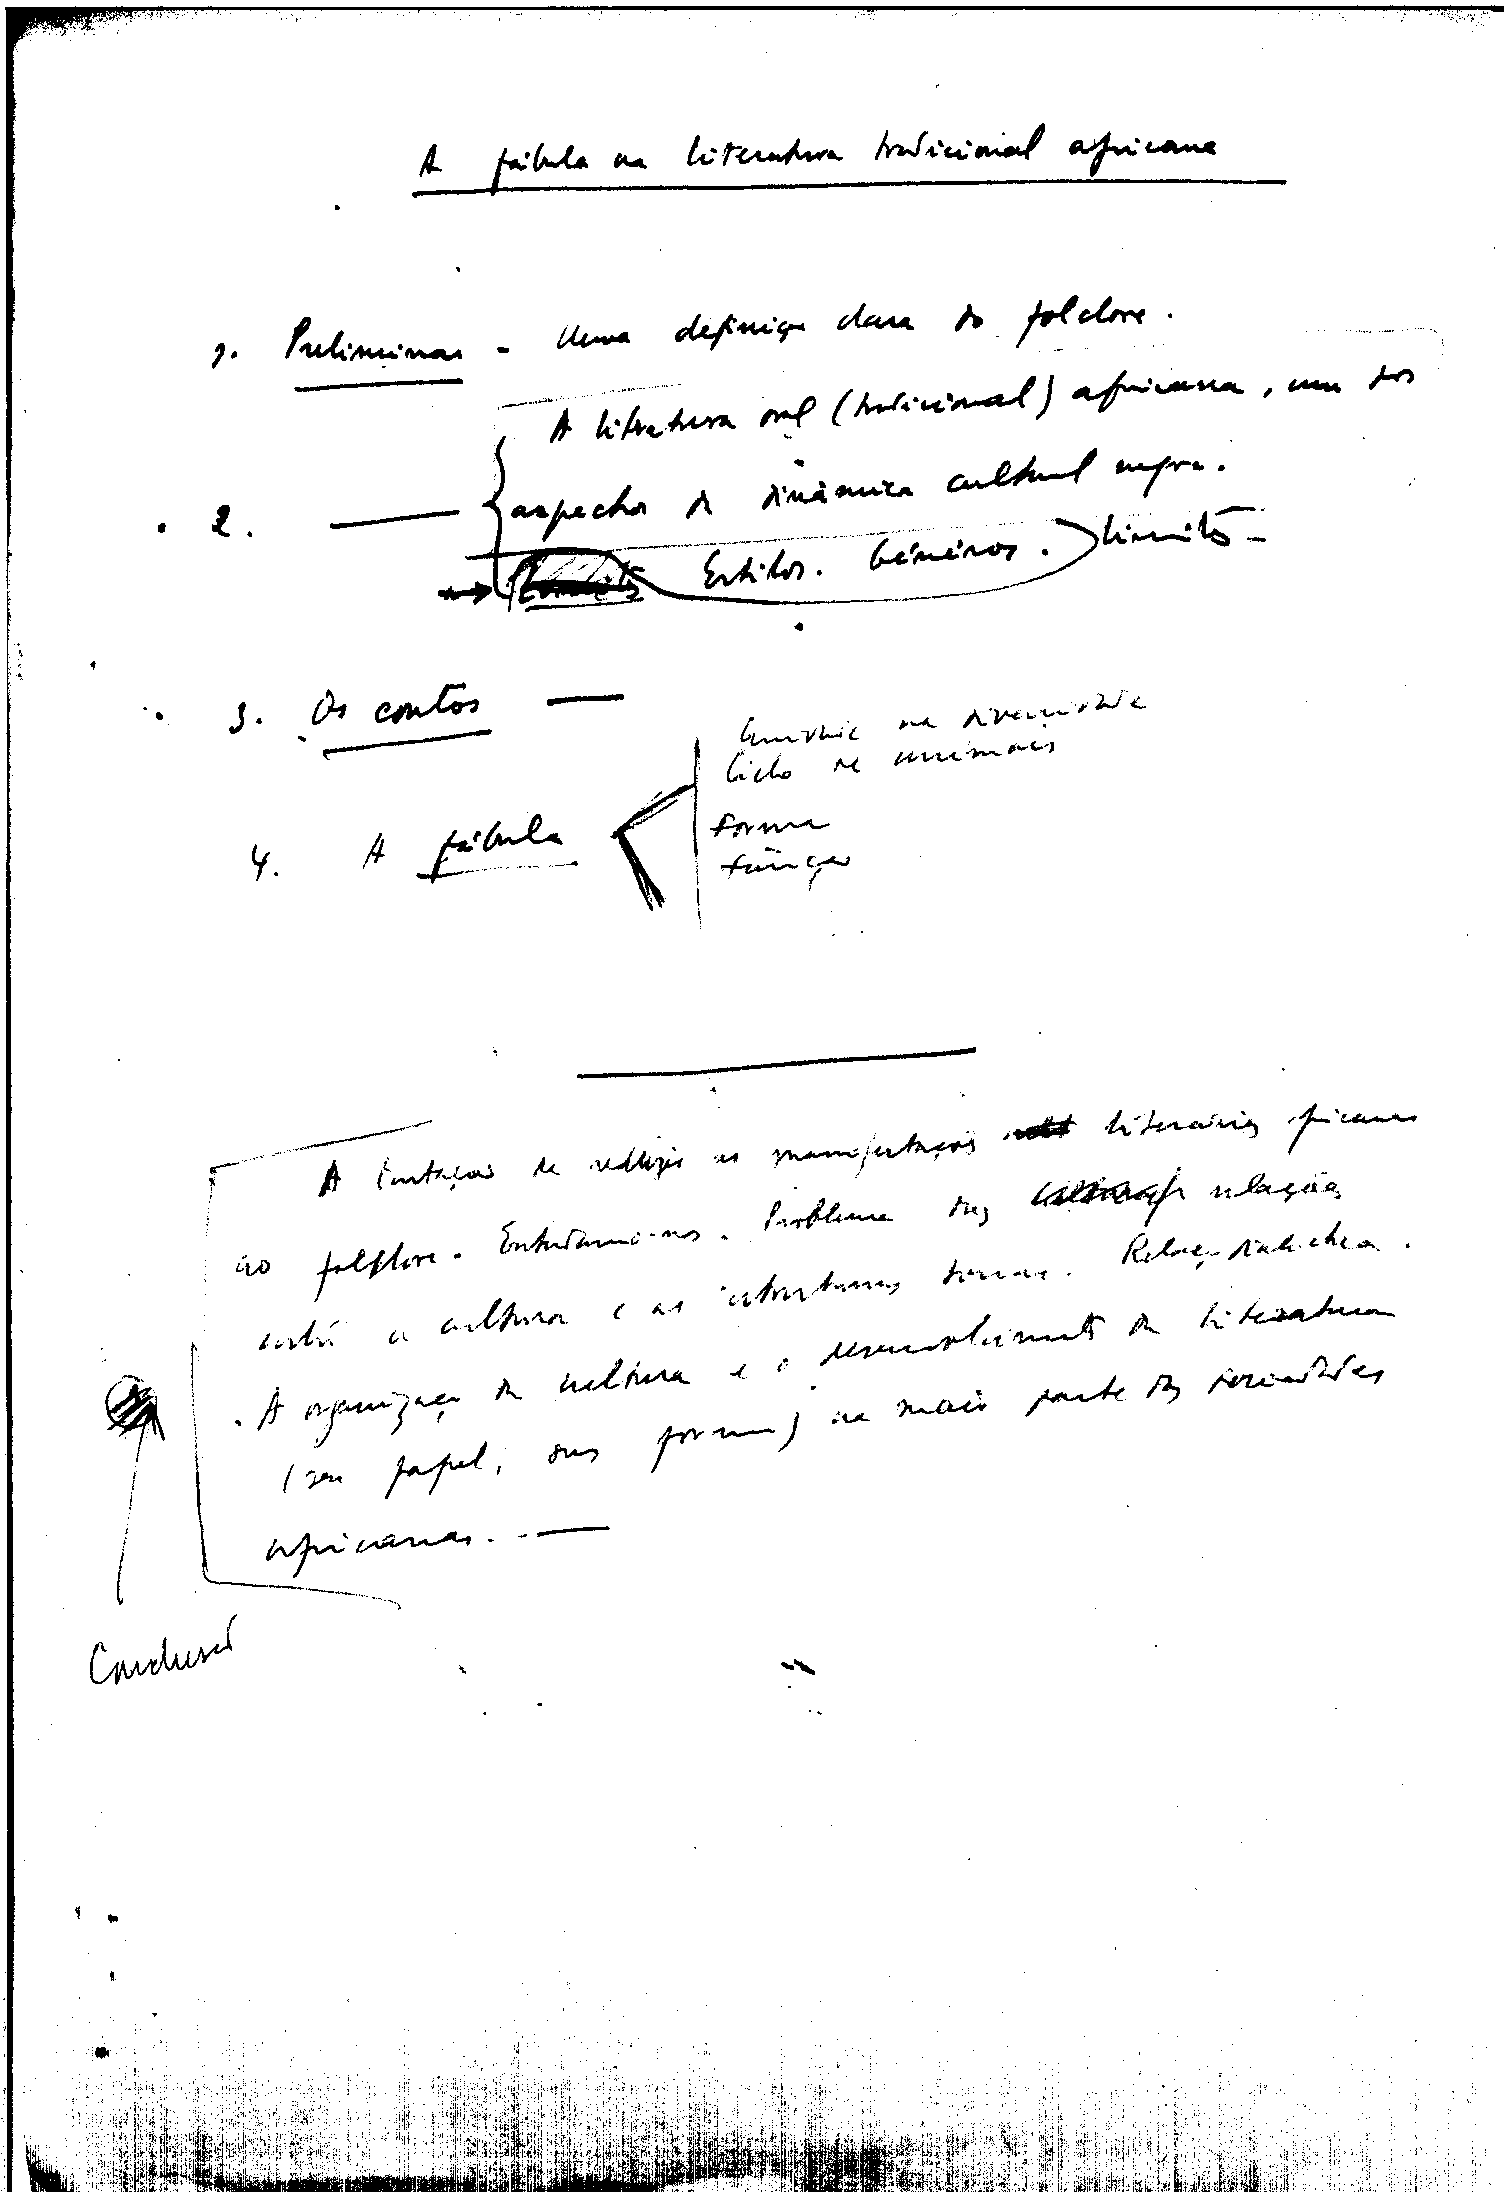 A fábula na literatura tradicional africana
1. Preliminar - Uma definição clara do folclore.
A literatura oral (tradicional) africana, um dos
2. — aspectos da dinâmica cultural negra.
Estilos. Géneros. Limites -
3. Os contos —
Unidade na diversidade
Ciclo de animais
4. A fábula
Forma
Função
A tentação de reduzir as manifestações literárias africanas
ao folclore. Entendamo-nos. Problema das relações
entre a cultura e as estruturas sociais. Relação dialéctica.
. A organização da cultura e o desenvolvimento da literatura
(seu papel, suas formas) na maior parte das sociedades
africanas. —